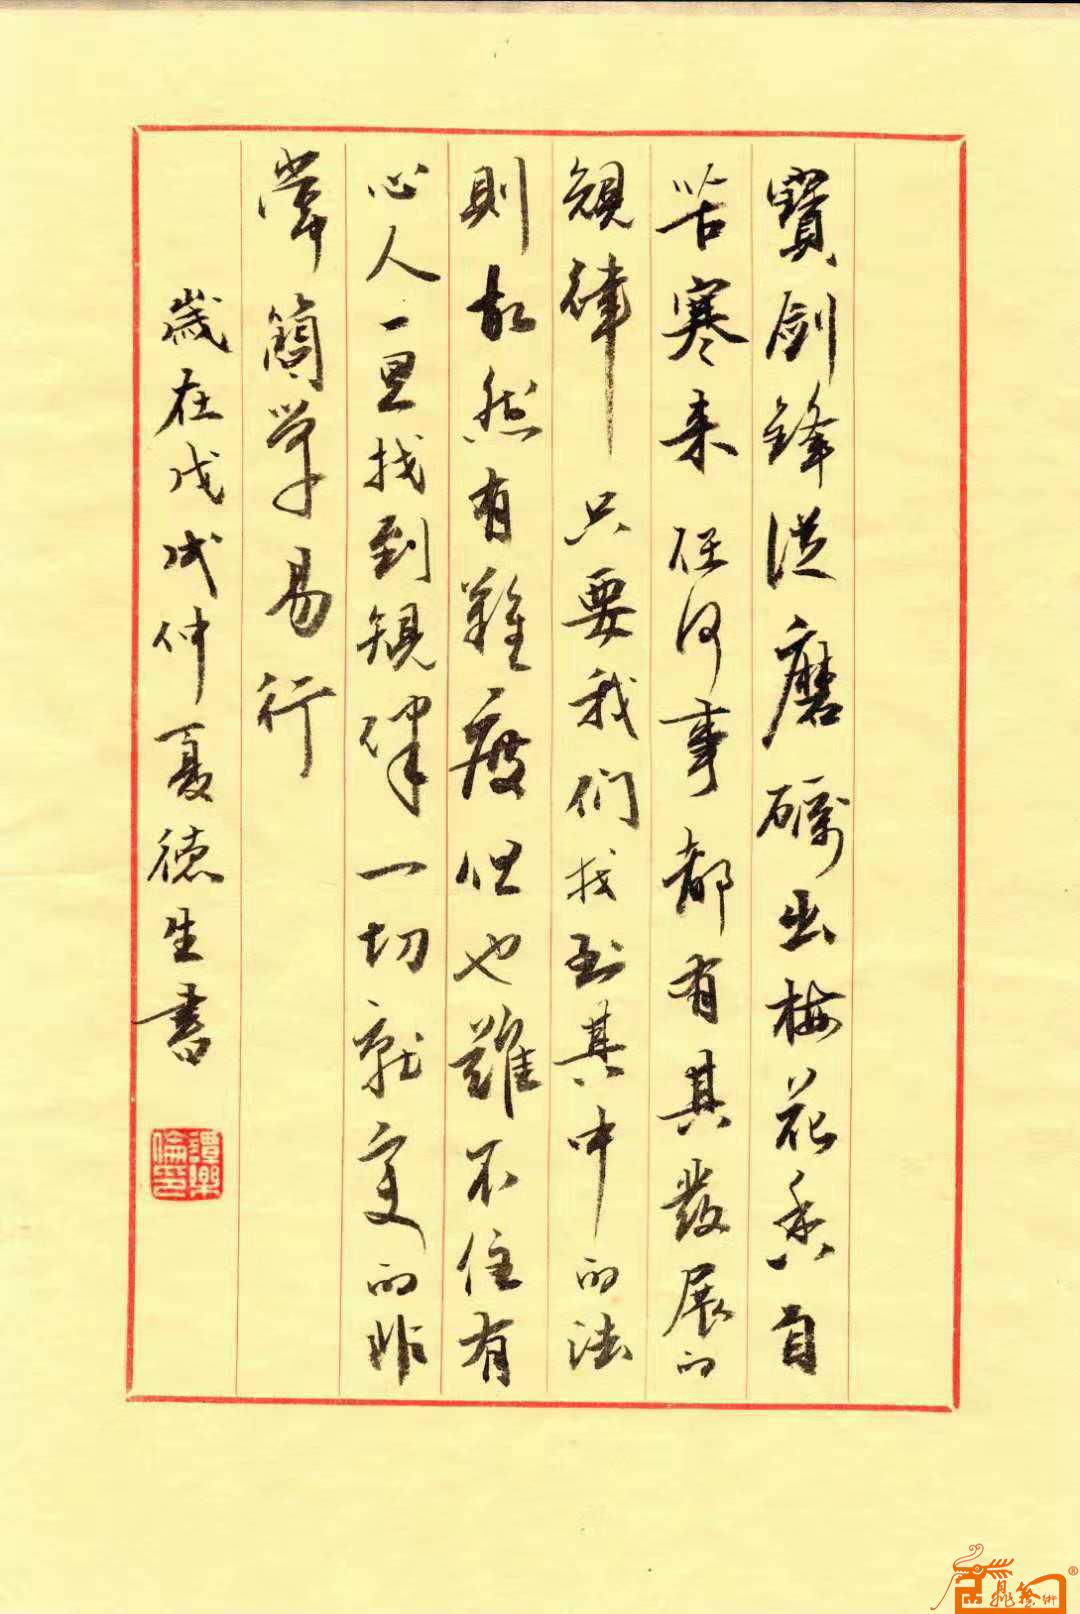 寶劍鋒從磨礪出梅花香自
苦寒来任何事都有其發展的
規律只要我們找到其中的法
則故然有難度但也難不住有
心人一旦找到規律一切就变的非
常簡單易行
歲在戊戌仲夏德生書
譚樂倫印